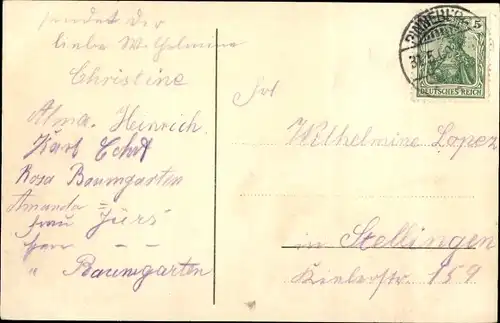 sendet der
liebe Wilhelmine
Christine
Alma. Heinrich.
Karl Echt
Rosa Baumgarten
Amanda =
Frau Jürs
Herr - -
" Baumgarten
5
DEUTSCHES REICH
Frl
Wilhelmine Lopez
in Stellingen
Kielerstr. 159